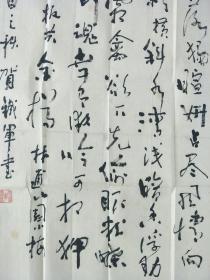 落獨暄妍占尽風情向
影横斜水清浅暗香浮動
霜禽欲下先偷眼粉蝶
魂幸有微吟可相狎
板共金樽 林逋山園小梅
之秋 賀鐵軍書